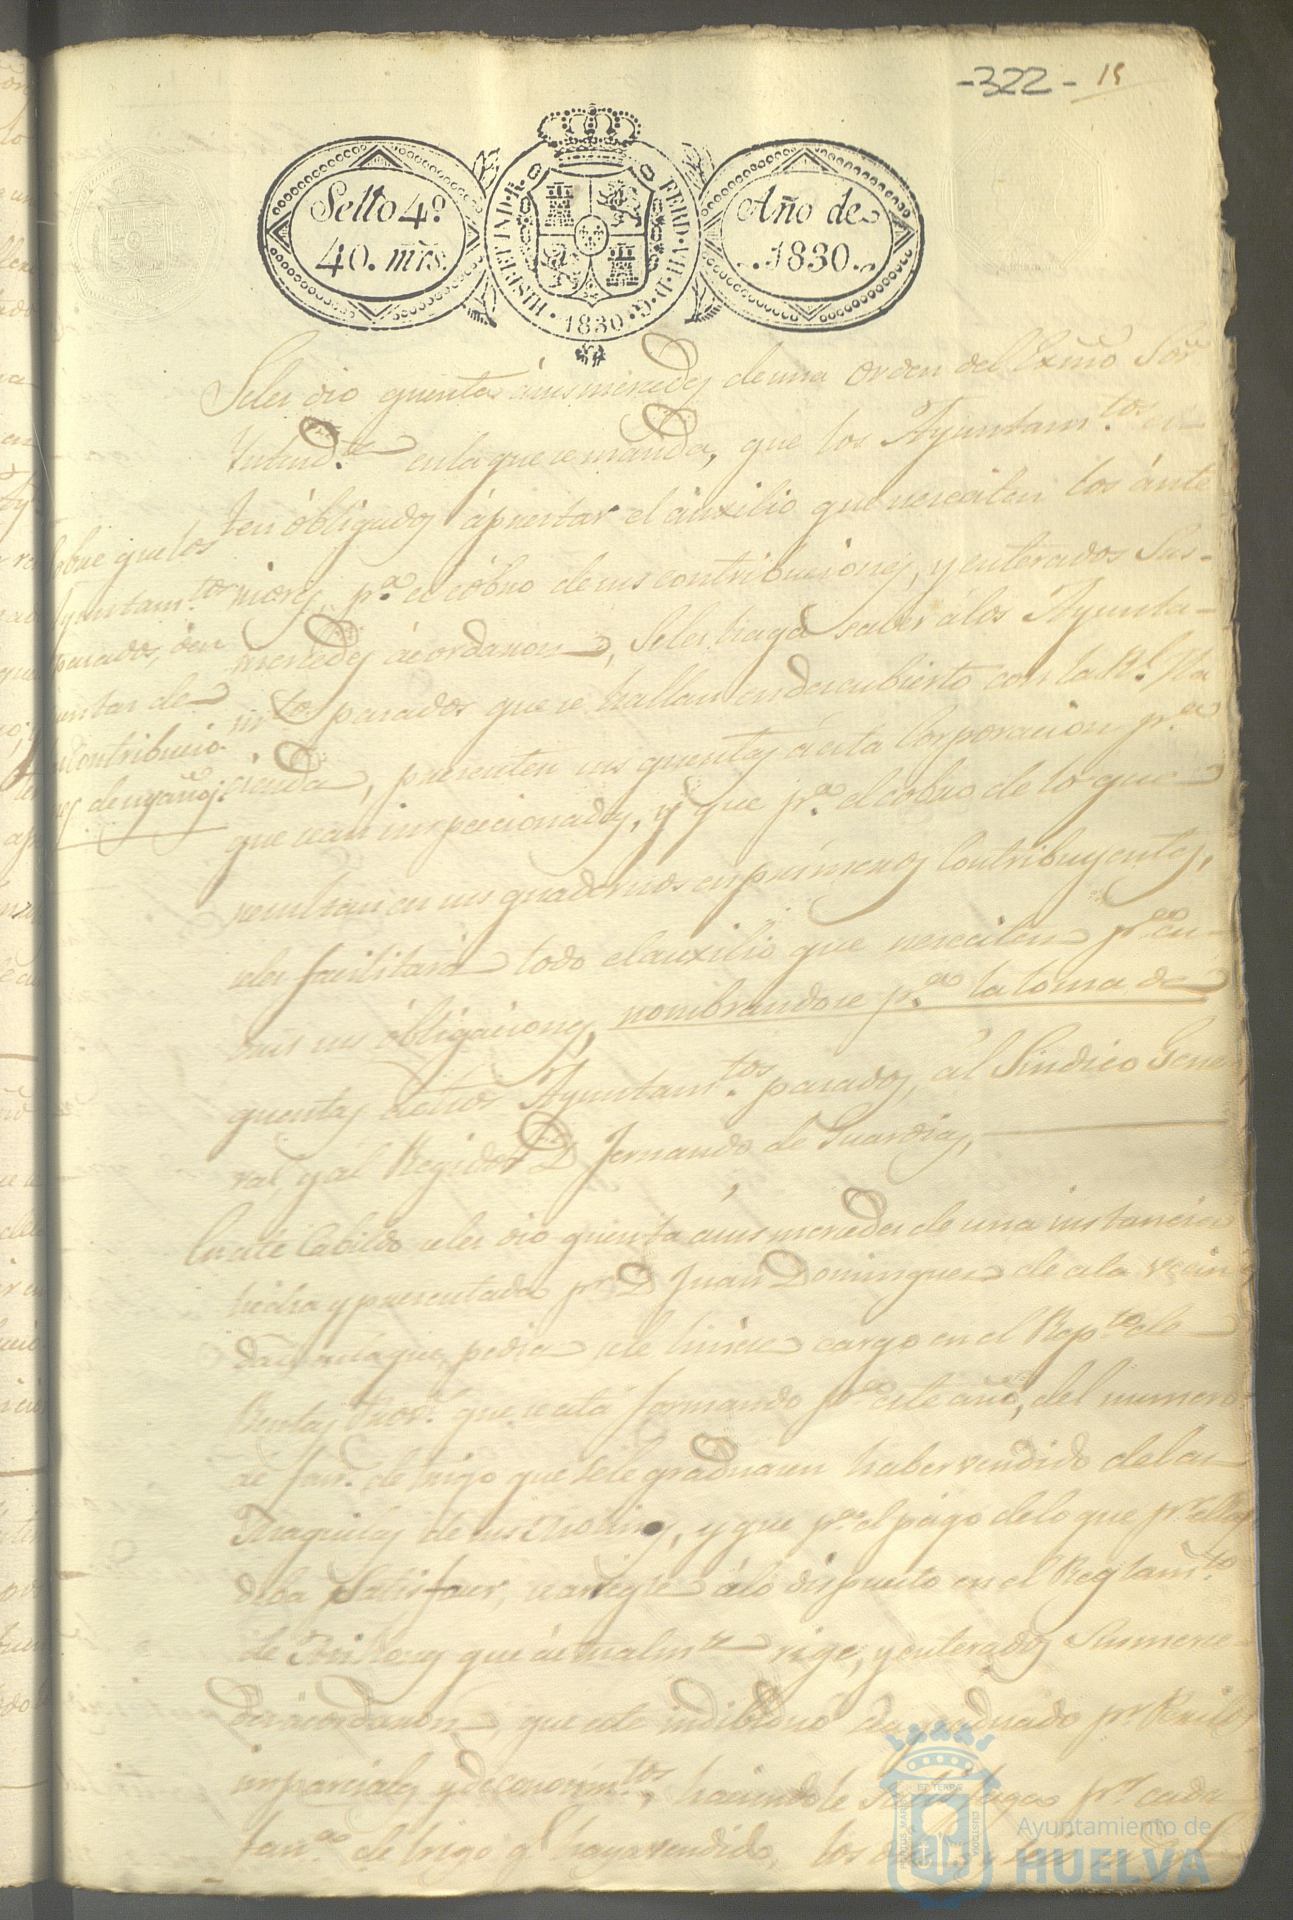 -322- 15
Sello 4º
40. mrs.
HISP. ET IND. R.
FERD. VII. D. G.
1830
Año de
1830.
Seles dio quenta ásus mercedes de una orden del Exmo Sor
Intend.te en la que se manda, que los Ayuntam.tos
ten óbligados áprestar el áuxilio que necesiten los ánte
riores p.a el cóbro de sus contribuciones, y enterados Sus-
mercedes ácordaron, Seles haga saber álos Ayunta-
m.tos pasados que se hallan en descubierto con la Rl. Ha
cienda, presenten sus quentas á esta Corporacion p.a
que sean inspecionadas, y que p.a el cobro de lo que
resultan en sus quadernos en primeros Contribuyentes,
seles facilitará todo el auxilio que necesiten p.a cu-
brir sus óbligaciones, nombrandose p.a la toma de
quentas dichos Ayuntam.tos pasados, al Sindico Gene
ral, y al Regidor D. Fernando de Guardias,
Sobre que los
Ayuntam.tos
pasados, den
quentas de
Contribucio-
nes de sus años.
En este Cabildo seles dio quenta ásus mercedes de una instancia
hecha y presentada pr. D. Juan Dominguez de esta vecin
dad, en la que pedia sele hiciese cargo en el Rep.to de
Rentas Prov.s que se está formando p.a este año, del numero
de fan.s de trigo que sele graduasen haber vendido de las
Maquilas de sus Molinos, y que p.a el pago delo que pr. ellas
deba Satisfacer, se arregle álo dispuesto en el Reglam.to
de que áctualm.te rige, y enterados Susmerce-
des ácordaron, que este individuo sea graduado pr. Peritos
imparciales y de conocim.tos, haciendole pr. cada
fan.a de trigo q.e haya vendido, los
Ayuntamiento de
HUELVA